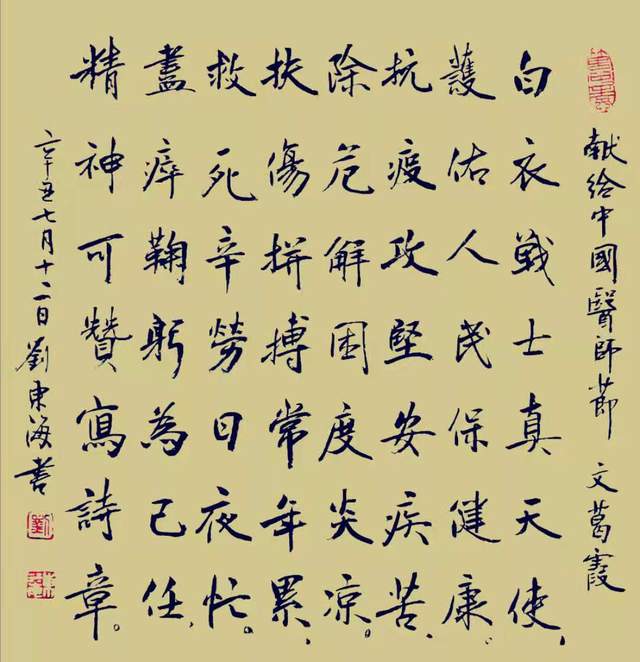 献给中國醫師節 文葛霞
白衣戰士真天使，
護佑人民保健康。
抗疫攻堅安疾苦，
除危解困度炎凉。
扶傷拼搏常年累，
救死辛勞日夜忙。
盡瘁鞠躬為己任，
精神可贊寫詩章。
辛丑七月十二日劉東海書